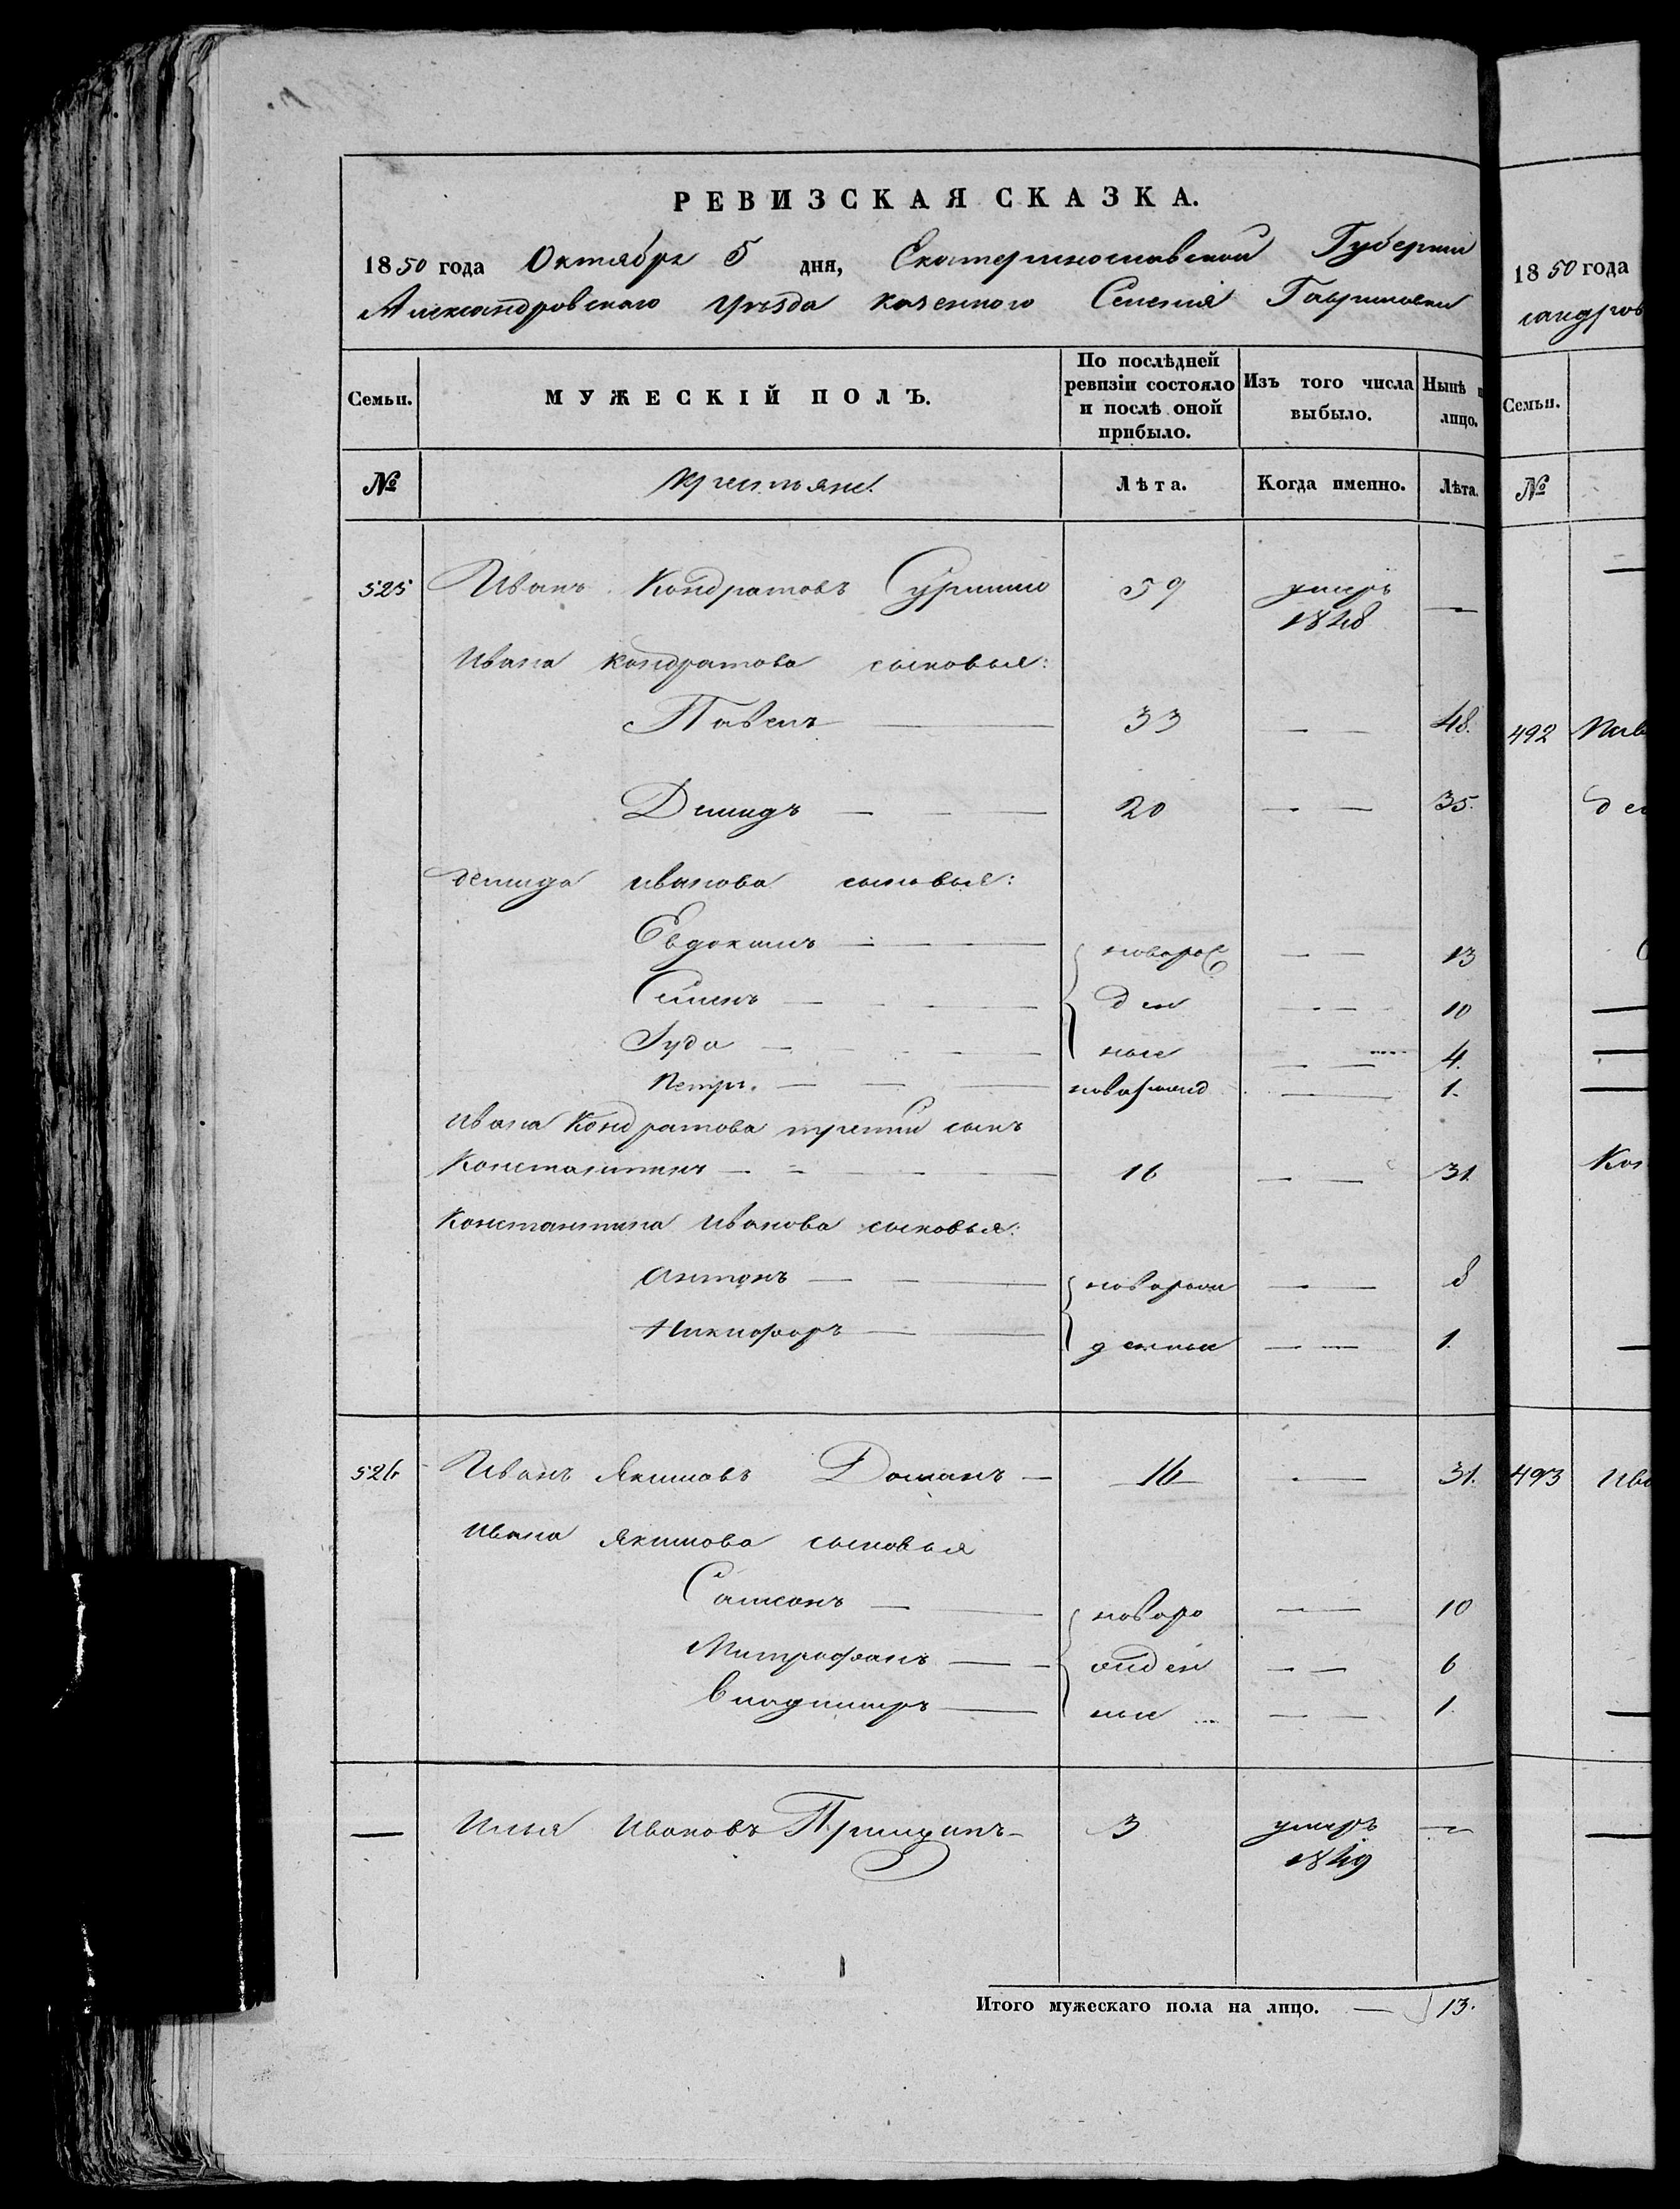 РЕВИЗСКАЯ СКАЗКА.
1850 года Октября 5 дня, Екатеринославской Губернии
Александровского уезда казенного Селения Гавриловки
Семьи. МУЖЕСКІЙ ПОЛЪ. По послѣдней ревизіи состояло и послѣ оной прибыло. Изъ того числа выбыло. Нынѣ лицо.
№ Крестьяне. Лѣта. Когда именно. Лѣта.
525 Иванъ Кондратовъ 59 умеръ 1848 —
Ивана Кондратова сыновья:
Павелъ — 33 — — 48.
Демидъ — — — 20 — — 35.
Демида Иванова сыновья:
Евдокимъ — — — новорож — — 13
Семенъ — — — ден — — 10
Іуда — — — ные — — 4.
Петръ. — — — новорожд — 1.
Ивана Кондратова третий сынъ
Константинъ — — — 16 — — 31.
Константина Иванова сыновья:
Антонъ — — — новорож — — 8
Никифоръ — — денные — — 1.
526 Иванъ Якимовъ Доманъ — 16 — 31.
Ивана Якимова сыновья
Самсонъ — — новоро — — 10
Митрофанъ — — жден — — 6
Владимиръ — ные — — 1.
— Илья Ивановъ 3 умеръ 1849 —
Итого мужескаго пола на лицо. — 13.
1850 года
сандров
Семьи.
№
492
де
493 Ива